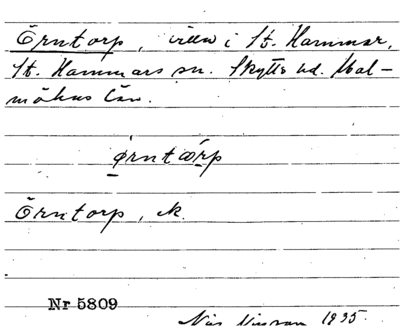 Örntorp, villa i St. Hammar,
St. Hammars sn. Skytts hd. Mal-
möhus län.
ǫ̀rntœ́rp
Örntorp, ek.
Nr 5809
Nils Nilsson 1935.